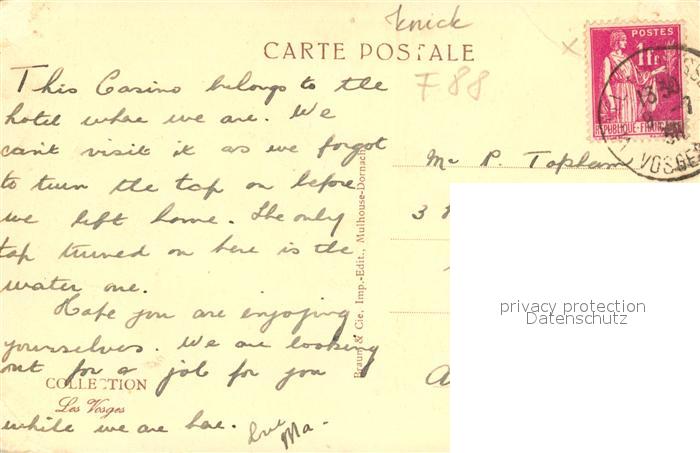 knick
CARTE POSTALE
F 88
POSTES
1Fr
RÉPUBLIQUE FRANÇAISE
13 30
VOSGES
This Casino belongs to the
hotel where we are. We
can't visit it as we forgot
to turn the tap on before
we left home. The only
tap turned on here is the
water one.
Hope you are enjoying
yourselves. We are looking
out for a job for you
while we are here.
love
Ma.
COLLECTION
Les Vosges
Braun & Cie, Imp.-Edit., Mulhouse-Dornach
Mr P. Toplam
3
A
privacy protection
Datenschutz